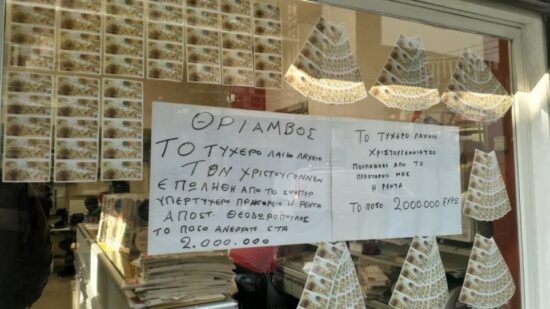 ΘΡΙΑΜΒΟΣ
ΤΟ ΤΥΧΕΡΟ ΛΑΙΚΟ ΛΑΧΕΙΟ
ΤΩΝ ΧΡΙΣΤΟΥΓΕΝΝΩΝ
ΕΠΩΛΗΘΗ ΑΠΟ ΤΟ ΣΟΥΠΕΡ
ΥΠΕΡΤΥΧΕΡΟ ΠΡΑΚΤΟΡΕΙΟ Η ΡΕΝΤΑ
ΑΠΟΣΤ. ΘΕΟΔΩΡΟΠΟΥΛΟΣ
ΤΟ ΠΟΣΟ ΑΝΕΡΧΕΤΕ ΣΤΑ
2.000.000
ΤΟ ΤΥΧΕΡΟ ΛΑΧΕΙΟ
ΧΡΙΣΤΟΥΓΕΝΝΙΑΤΙΚΟ
ΠΟΥΛΗΘΗΚΕ ΑΠΟ ΤΟ
ΠΡΑΚΤΟΡΙΟ ΜΑΣ
Η ΡΕΝΤΑ
ΤΟ ΠΟΣΟ 2000000 ΕΥΡΩ